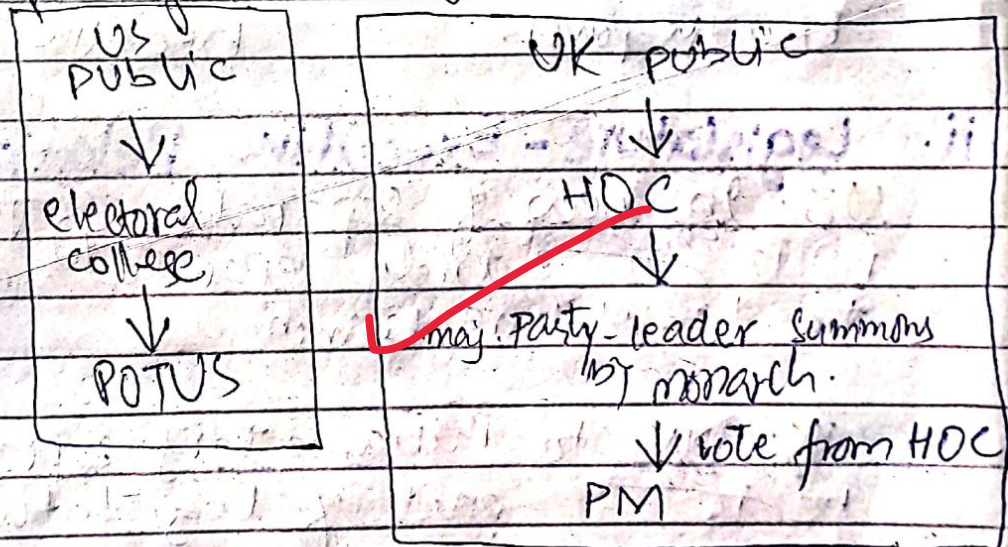 US
public
electoral
college
POTUS
UK public
HOC
maj. party-leader summons
by monarch.
vote from HOC
PM